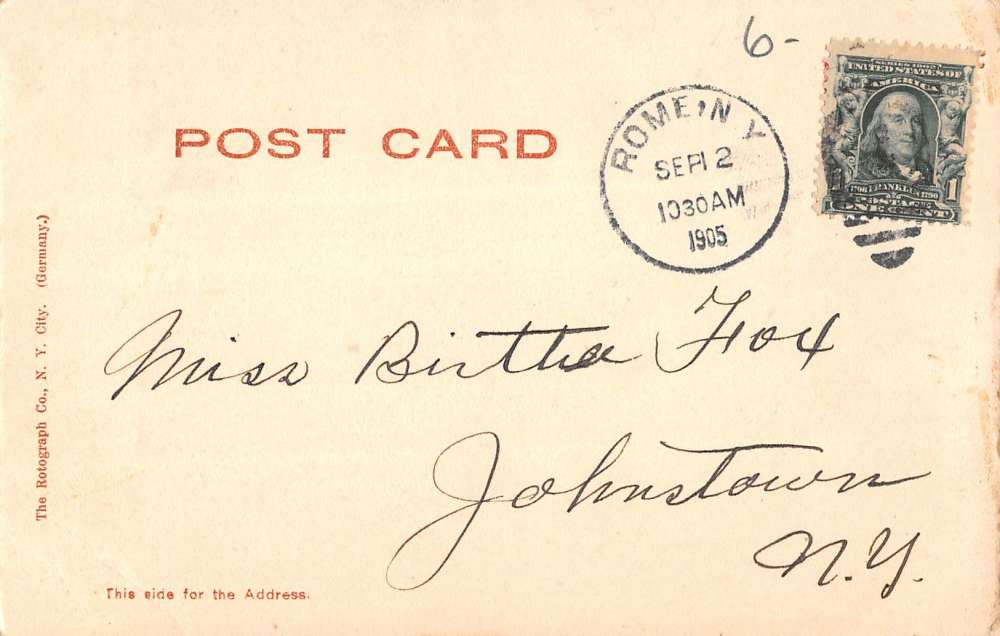 6-
SERIES 1902
UNITED STATES OF
AMERICA
1708 FRANKLIN 1790
1 1
POSTAGE
ONE CENT
ROME, N Y
SEP 12
1030AM
1905
POST CARD
The Rotograph Co., N. Y. City. (Germany.)
Miss Birtha Fox
Johnstown
N.Y.
This side for the Address.